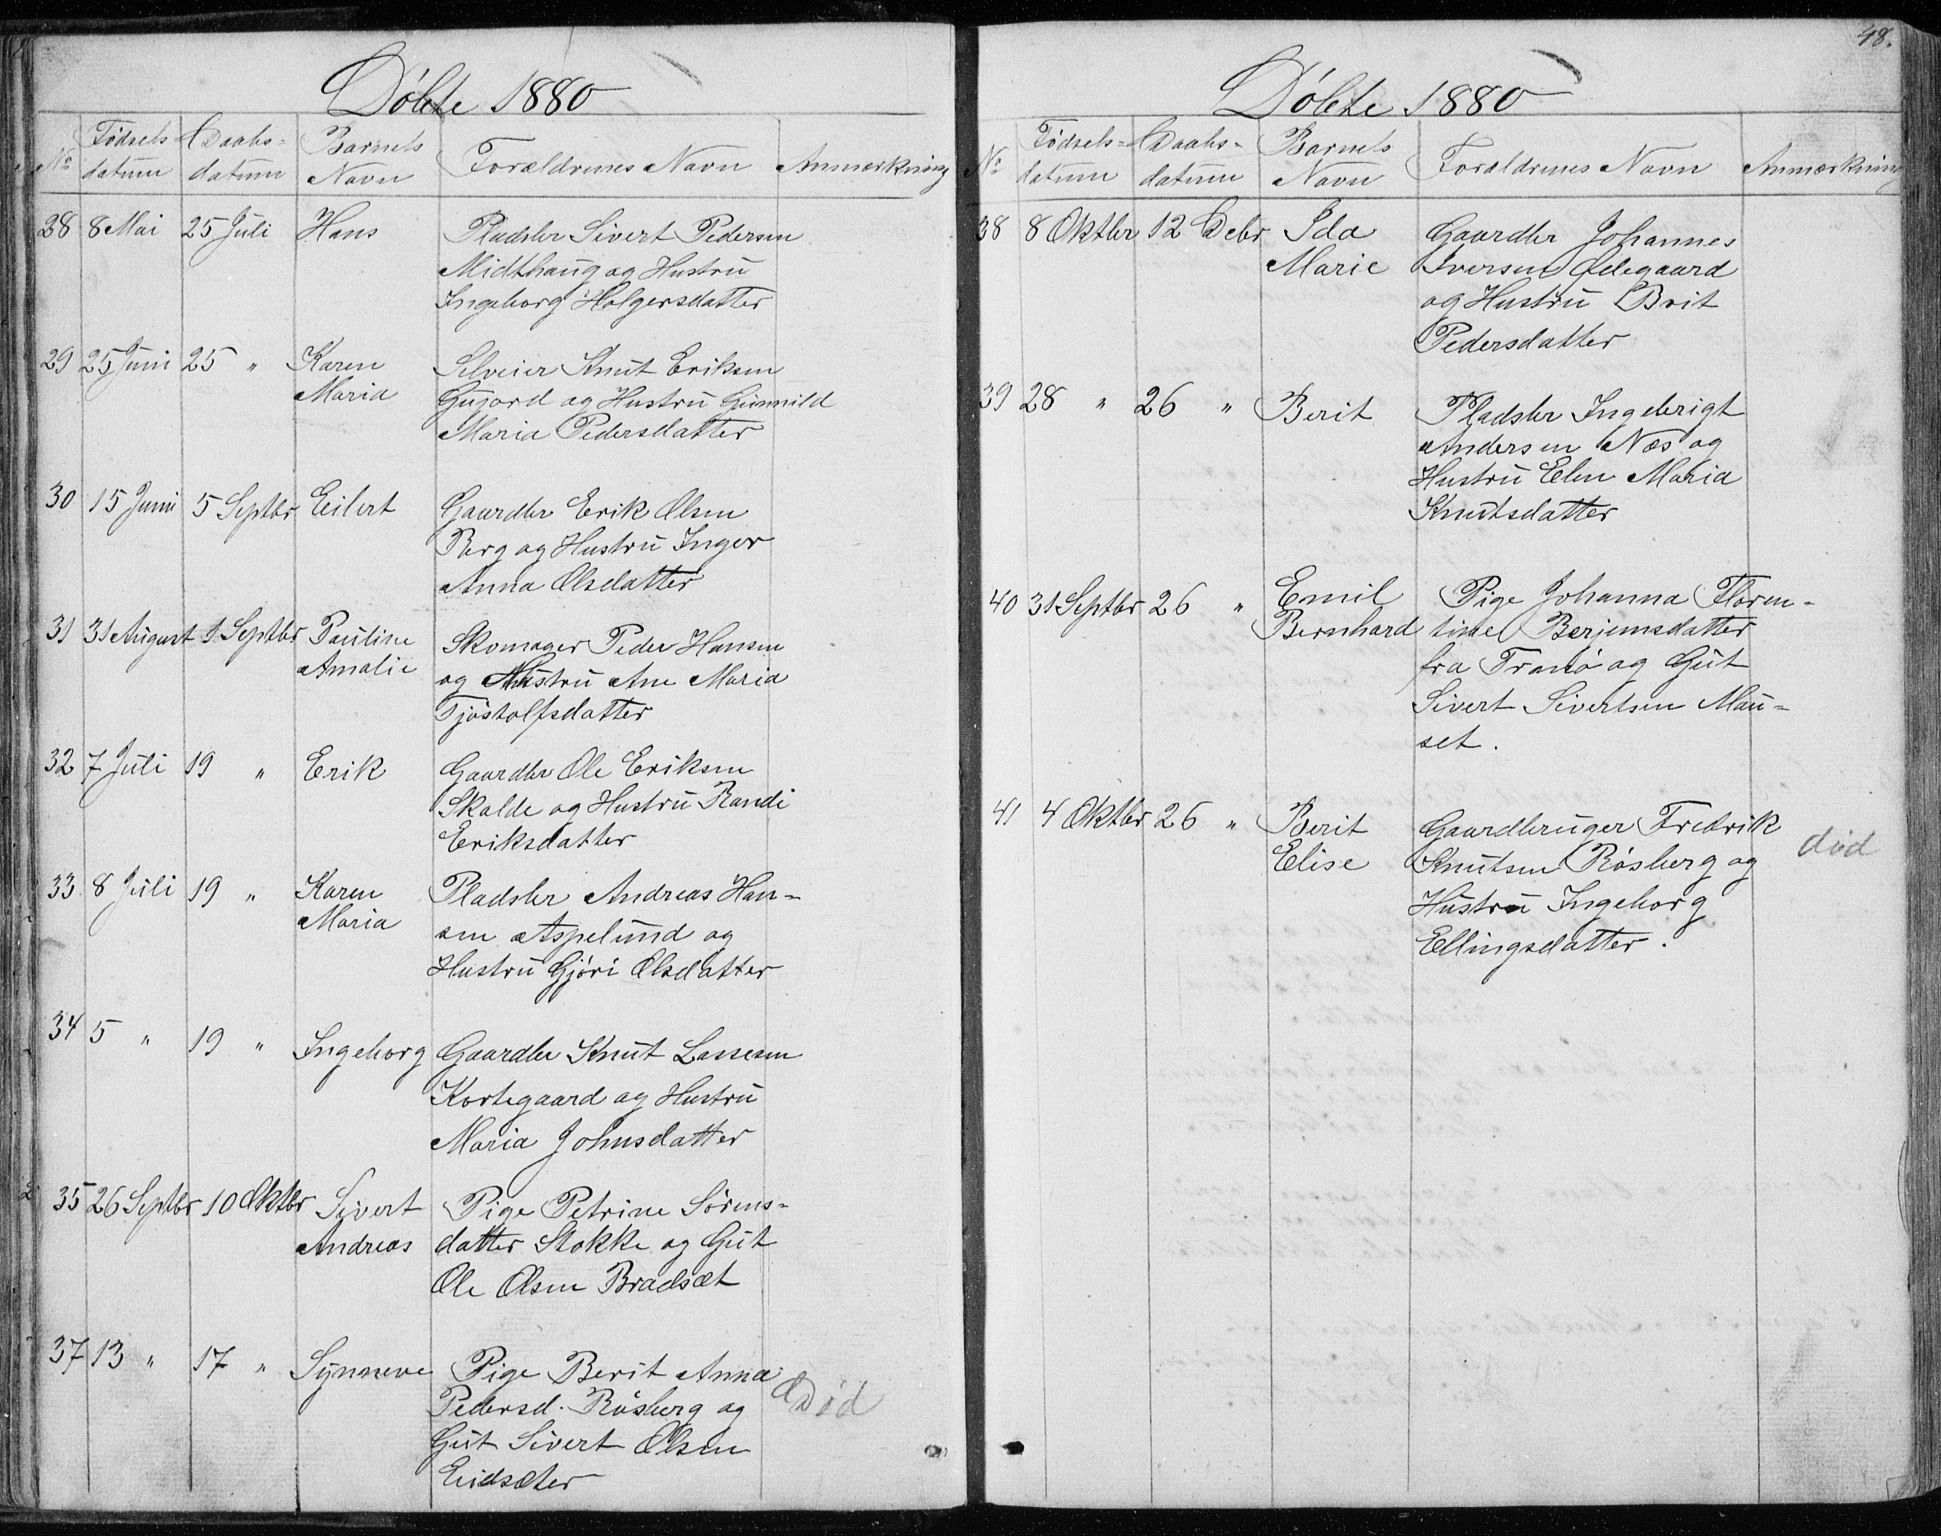 Døbte 1880
No Fødsels- datum Daabs- datum Barnets Navn Forældrenes Navn Anmærkning
28 8 Mai 25 Juli Hans Pladsbr Sivert Pedersen
Midthaug og Hustru
Ingeborg Holgersdatter
29 25 Juni 25 " Karen Selveier Knut Eriksen
Maria Gujord og Hustru Gunnild
Maria Pedersdatter
30 15 Juni 5 Septbr Eilert Gaardbr Erik Olsen
Berg og Hustru Inger
Anna Olsdatter
31 31 August 1 Septbr Pauline Skomager Peder Hansen
Amalie og Hustru Ane Maria
Tjøstolfsdatter
32 7 Juli 19 " Erik Gaardbr Ole Eriksen
Skalde og Hustru Randi
Eriksdatter
33 8 Juli 19 " Karen Pladsbr Andreas Han-
Maria sen Aspelund og
Hustru Gjøri Olsdatter
34 5 " 19 " Ingeborg Gaardbr Knut Lassesen
Kortegaard og Hustru
Maria Johnsdatter
35 26 Septbr 10 Oktbr Sivert Pige Petrine Sørens-
Andreas datter Stokke og Gut
Ole Olsen Bradsæt
37 13 " 17 " Synneve Pige Berit Anna
Pedersd. Røsberg og Død
Gut Sivert Olsen
Eidsæter
48.
Døbte 1880
No Fødsels- datum Daabs- datum Barnets Navn Forældrenes Navn Anmærkning
38 8 Oktbr 12 Debr Ida Gaardbr Johannes
Marie Iversen Ødegaard
og Hustru Brit
Pedersdatter
39 28 " 26 " Berit Pladsbr Ingebrigt
Andersen Næs og
Hustru Elen Maria
Knutsdatter
40 31 Septbr 26 " Emil Pige Johanna Floren-
Bernhard tine Berjemsdatter
fra Tranø og Gut
Sivert Sivertsen Mau-
set.
41 4 Oktbr 26 " Berit Gaardbruger Fredrik
Elise Knutsen Røsberg og død
Hustru Ingeborg
Ellingsdatter.